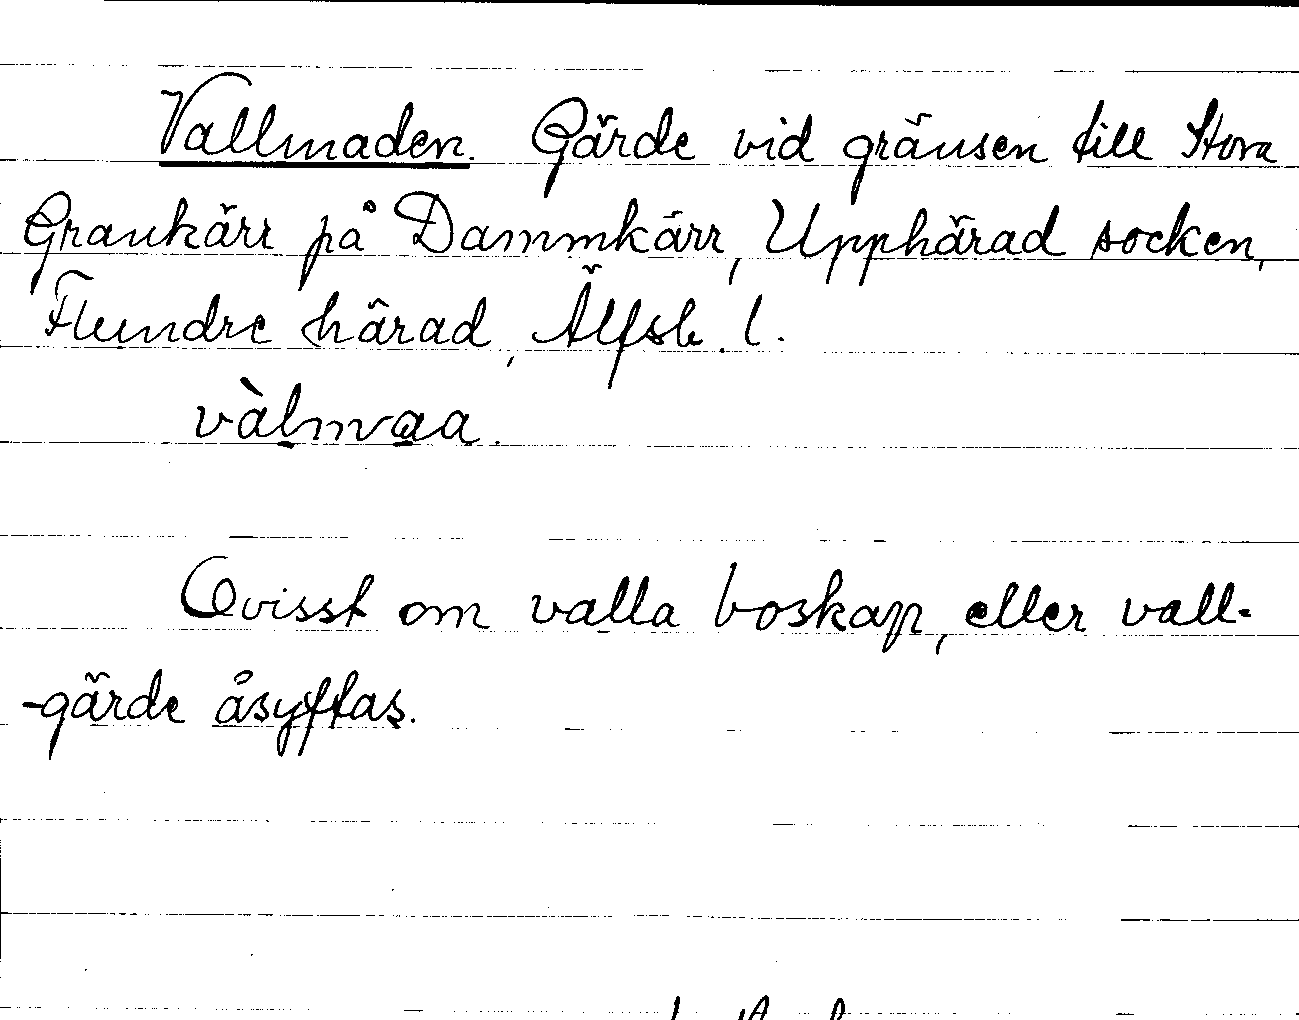 Vallmaden. Gärde vid gränsen till Stora
Grankärr på Dammkärr, Upphärad socken,
Flundre härad, Älfsb. l.
vàlmaa.
Ovisst om valla boskap, eller vall-
-gärde åsyftas.